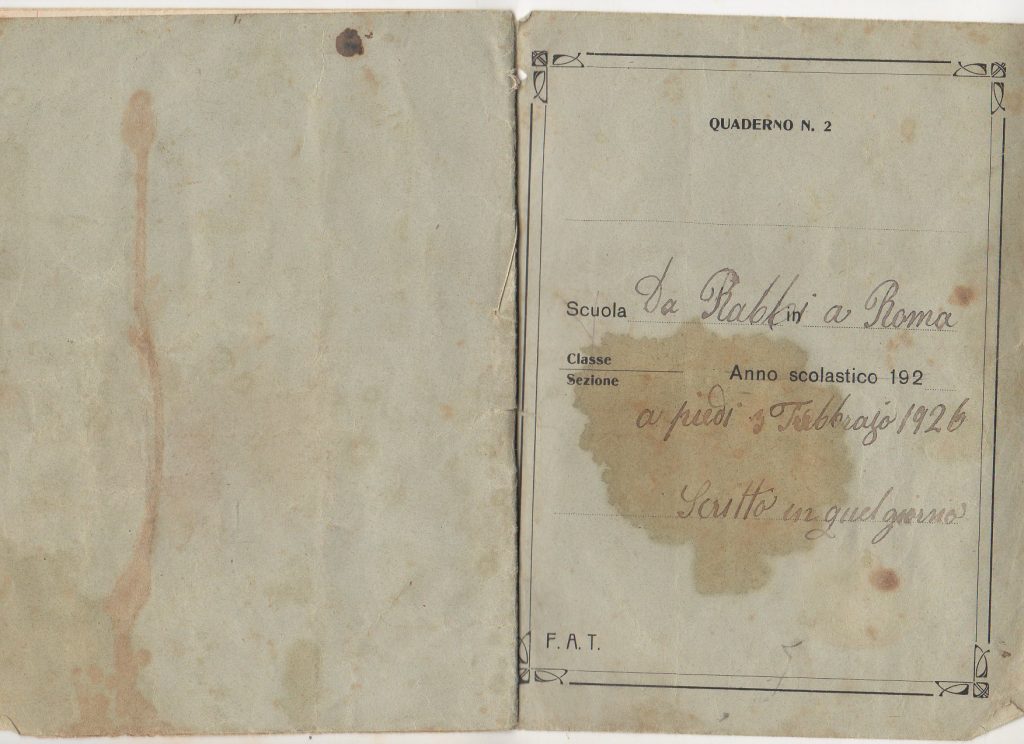 QUADERNO N. 2
Scuola Da Rabbi in a Roma
Classe
Sezione
Anno scolastico 192
a piedi 3 Febbrajo 1926
Scritto in quel giorno
F. A. T.